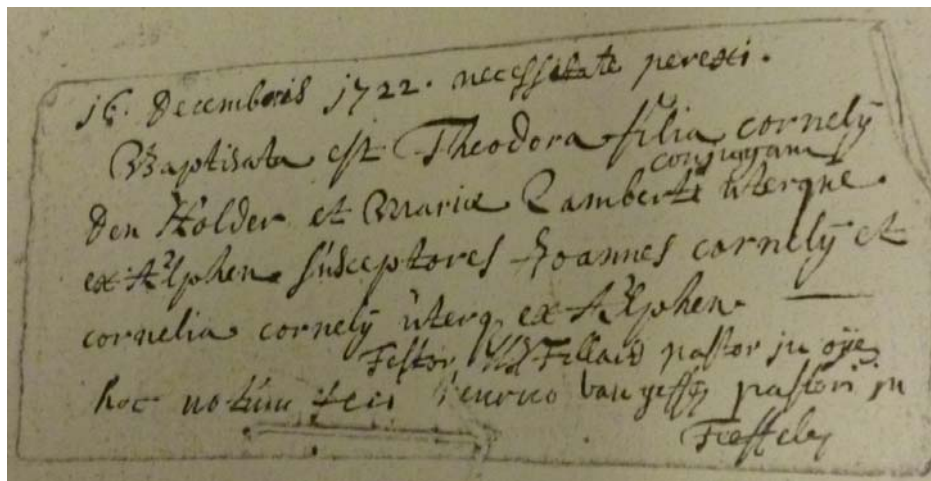 16. Decembris 1722. necessitate perexi.
Baptisata est Theodora filia cornelÿ
conjugum
Den Holder et Mariæ Lamberti uterque
ex Alphen susceptores Joannes cornelÿ et
cornelia cornelÿ uterq ex Alphen
Testor pastor in oÿe
hoc notum feci Henrico van pastori in